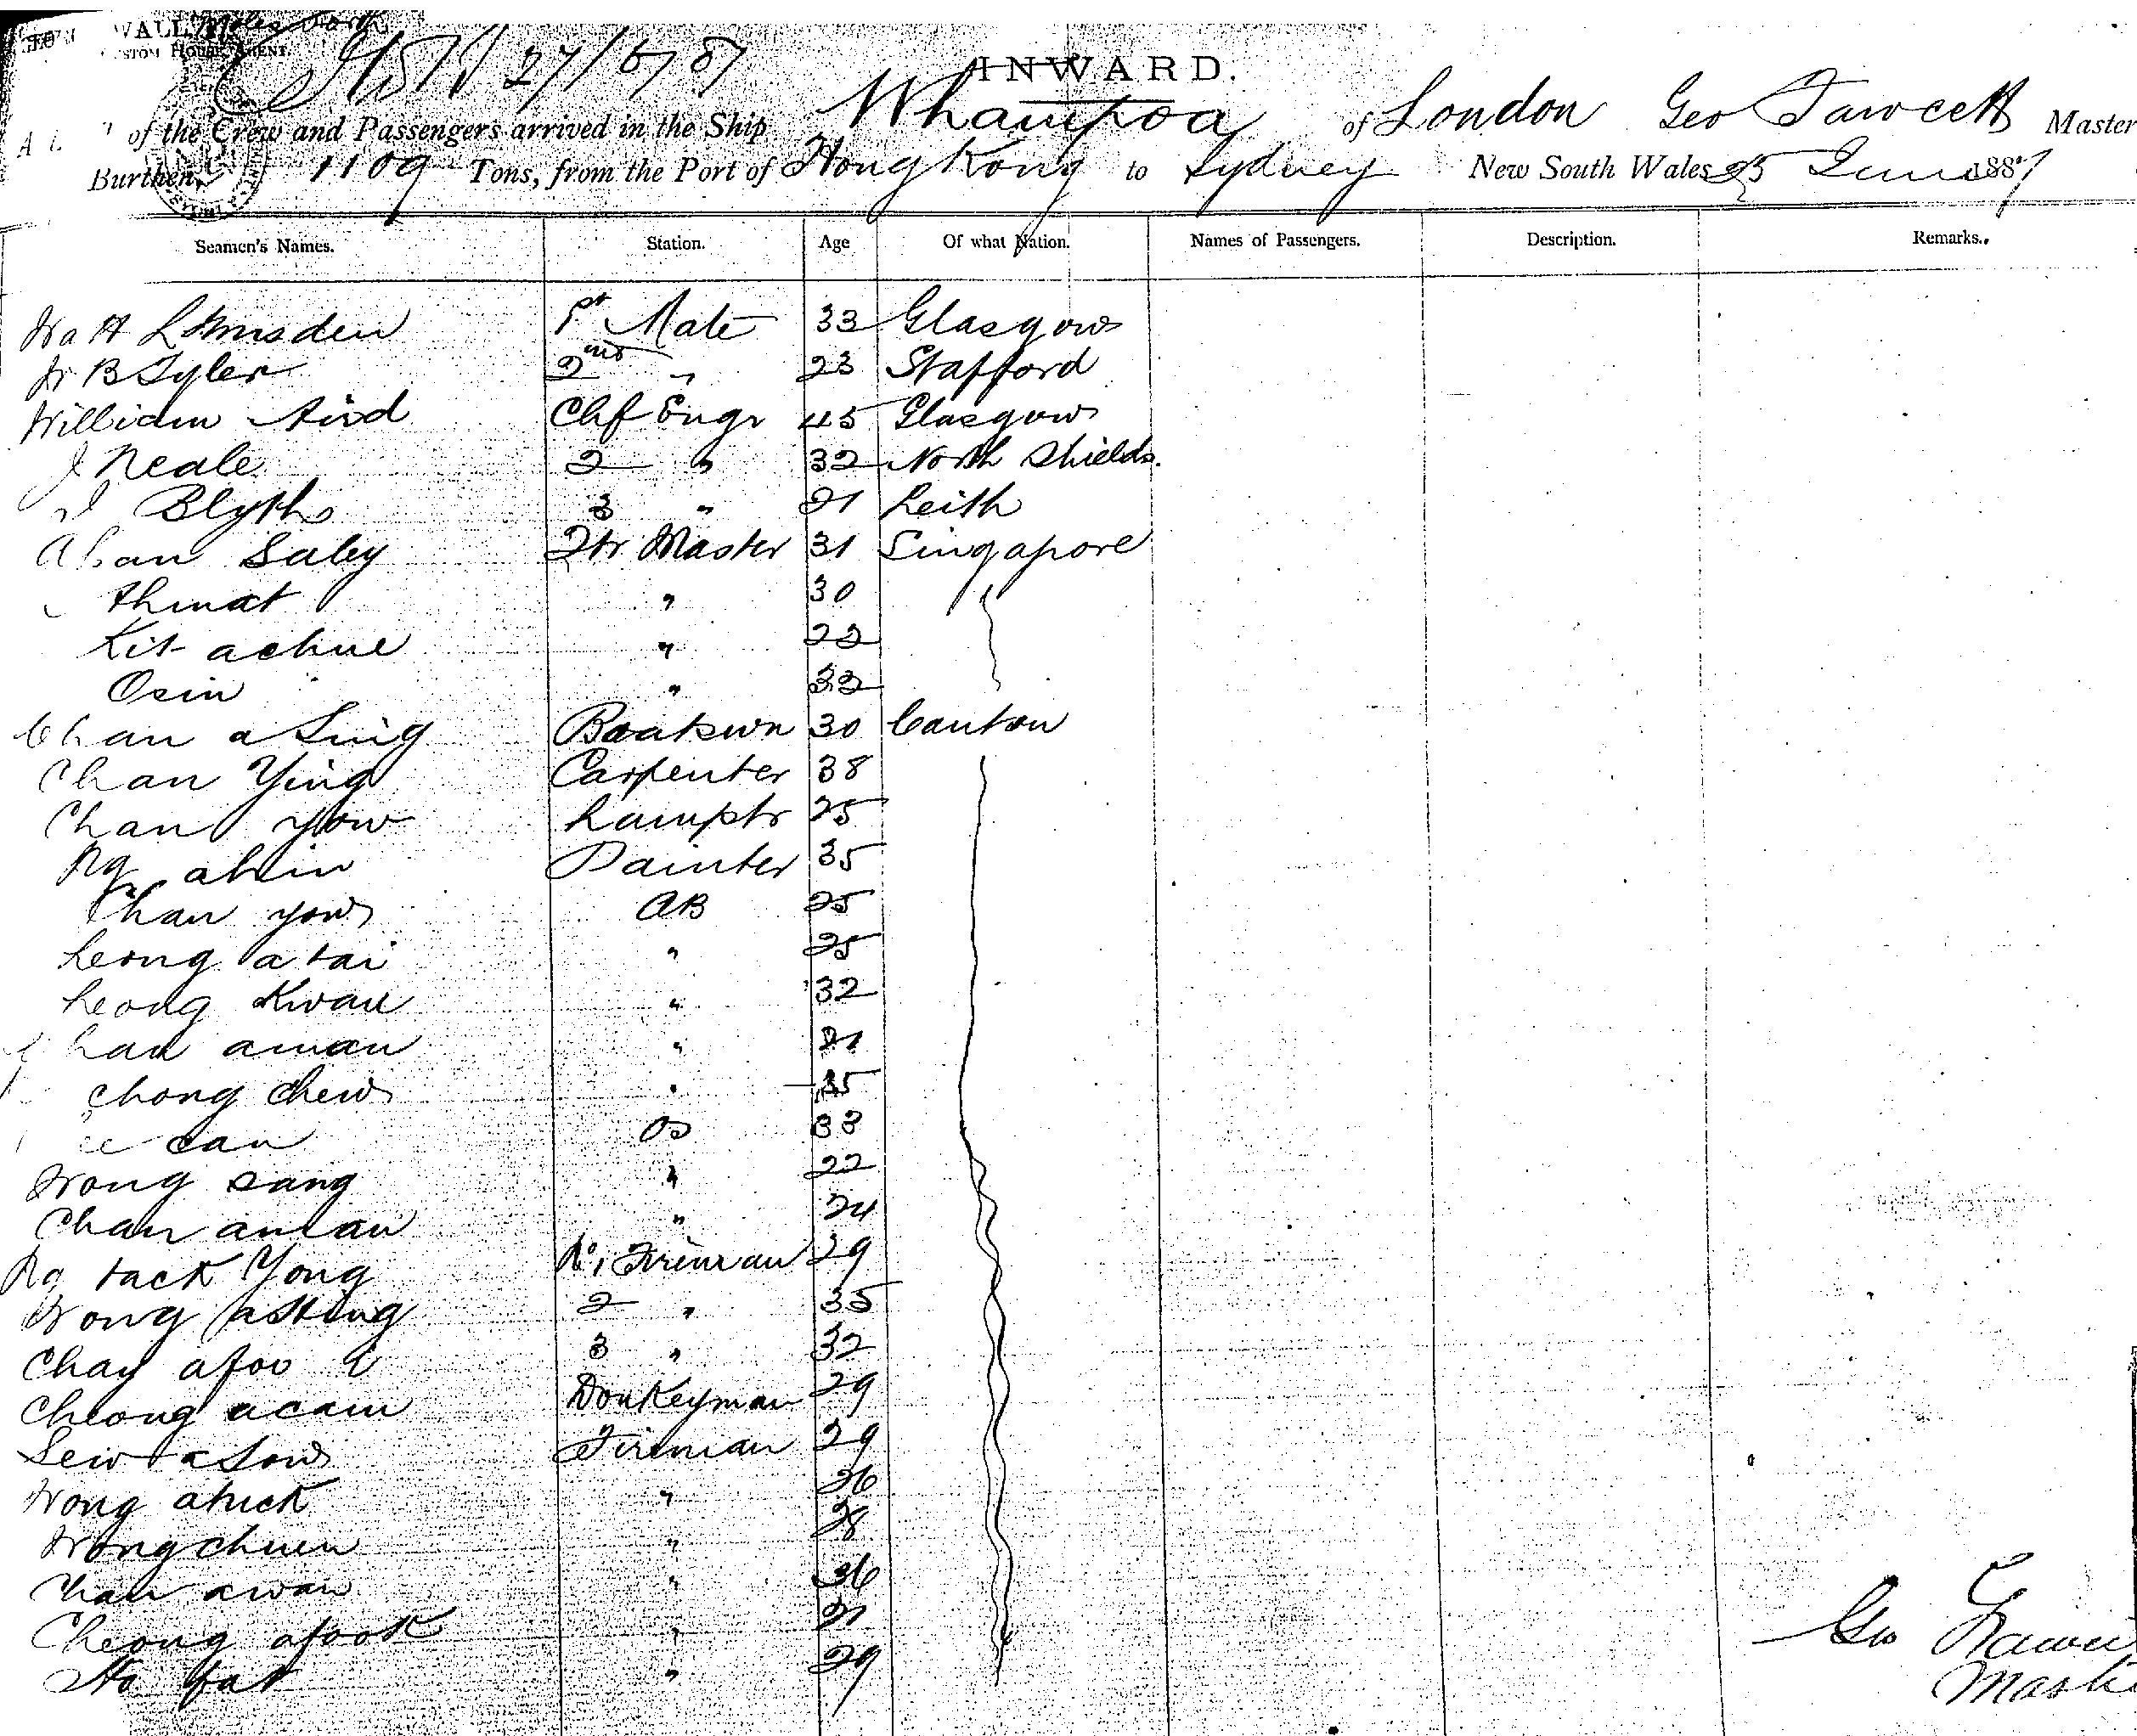 WALL
CUSTOM HOUSE AGENT
27/6/87
INWARD.
of the Crew and Passengers arrived in the Ship Whampoa of London Geo Fawcett Master
Burthen, 1109 Tons, from the Port of Hong Kong to Sydney New South Wales 25 June 1887
Seamen's Names. Station. Age Of what Nation. Names of Passengers. Description. Remarks.
Lumsden 1st Mate 33 Glasgow
B Tyler 2nd " 23 Stafford
William Aird Chf Engr 45 Glasgow
J Neale 2 " 32 North Shields.
Blyth 3 " 21 Leith
Saley Qtr Master 31 Singapore
" 30
Kit achue " 22
Osin " 32
Chan a Sing Boatswn 30 Canton
Chan Ying Carpenter 38
Chan Yow Lamptr 25
Ng ahin Painter 35
Chan yow AB 25
Leong a tai " 25
Leong Kwan " 32
Chan aman " 21
Chong Chew " 35
can OS 33
Wong sang " 22
Chan amau " 24
Ng tack Yong No 1 Fireman 29
Wong 2 " 35
Chay afoo 3 " 32
Cheong acam Donkeyman 29
Sew a Sow Fireman 29
Wong atuck " 26
Wong chuen " 28
Chan awan " 36
Cheong afook " 21
Ho fat " 29
Geo Fawce
Maste